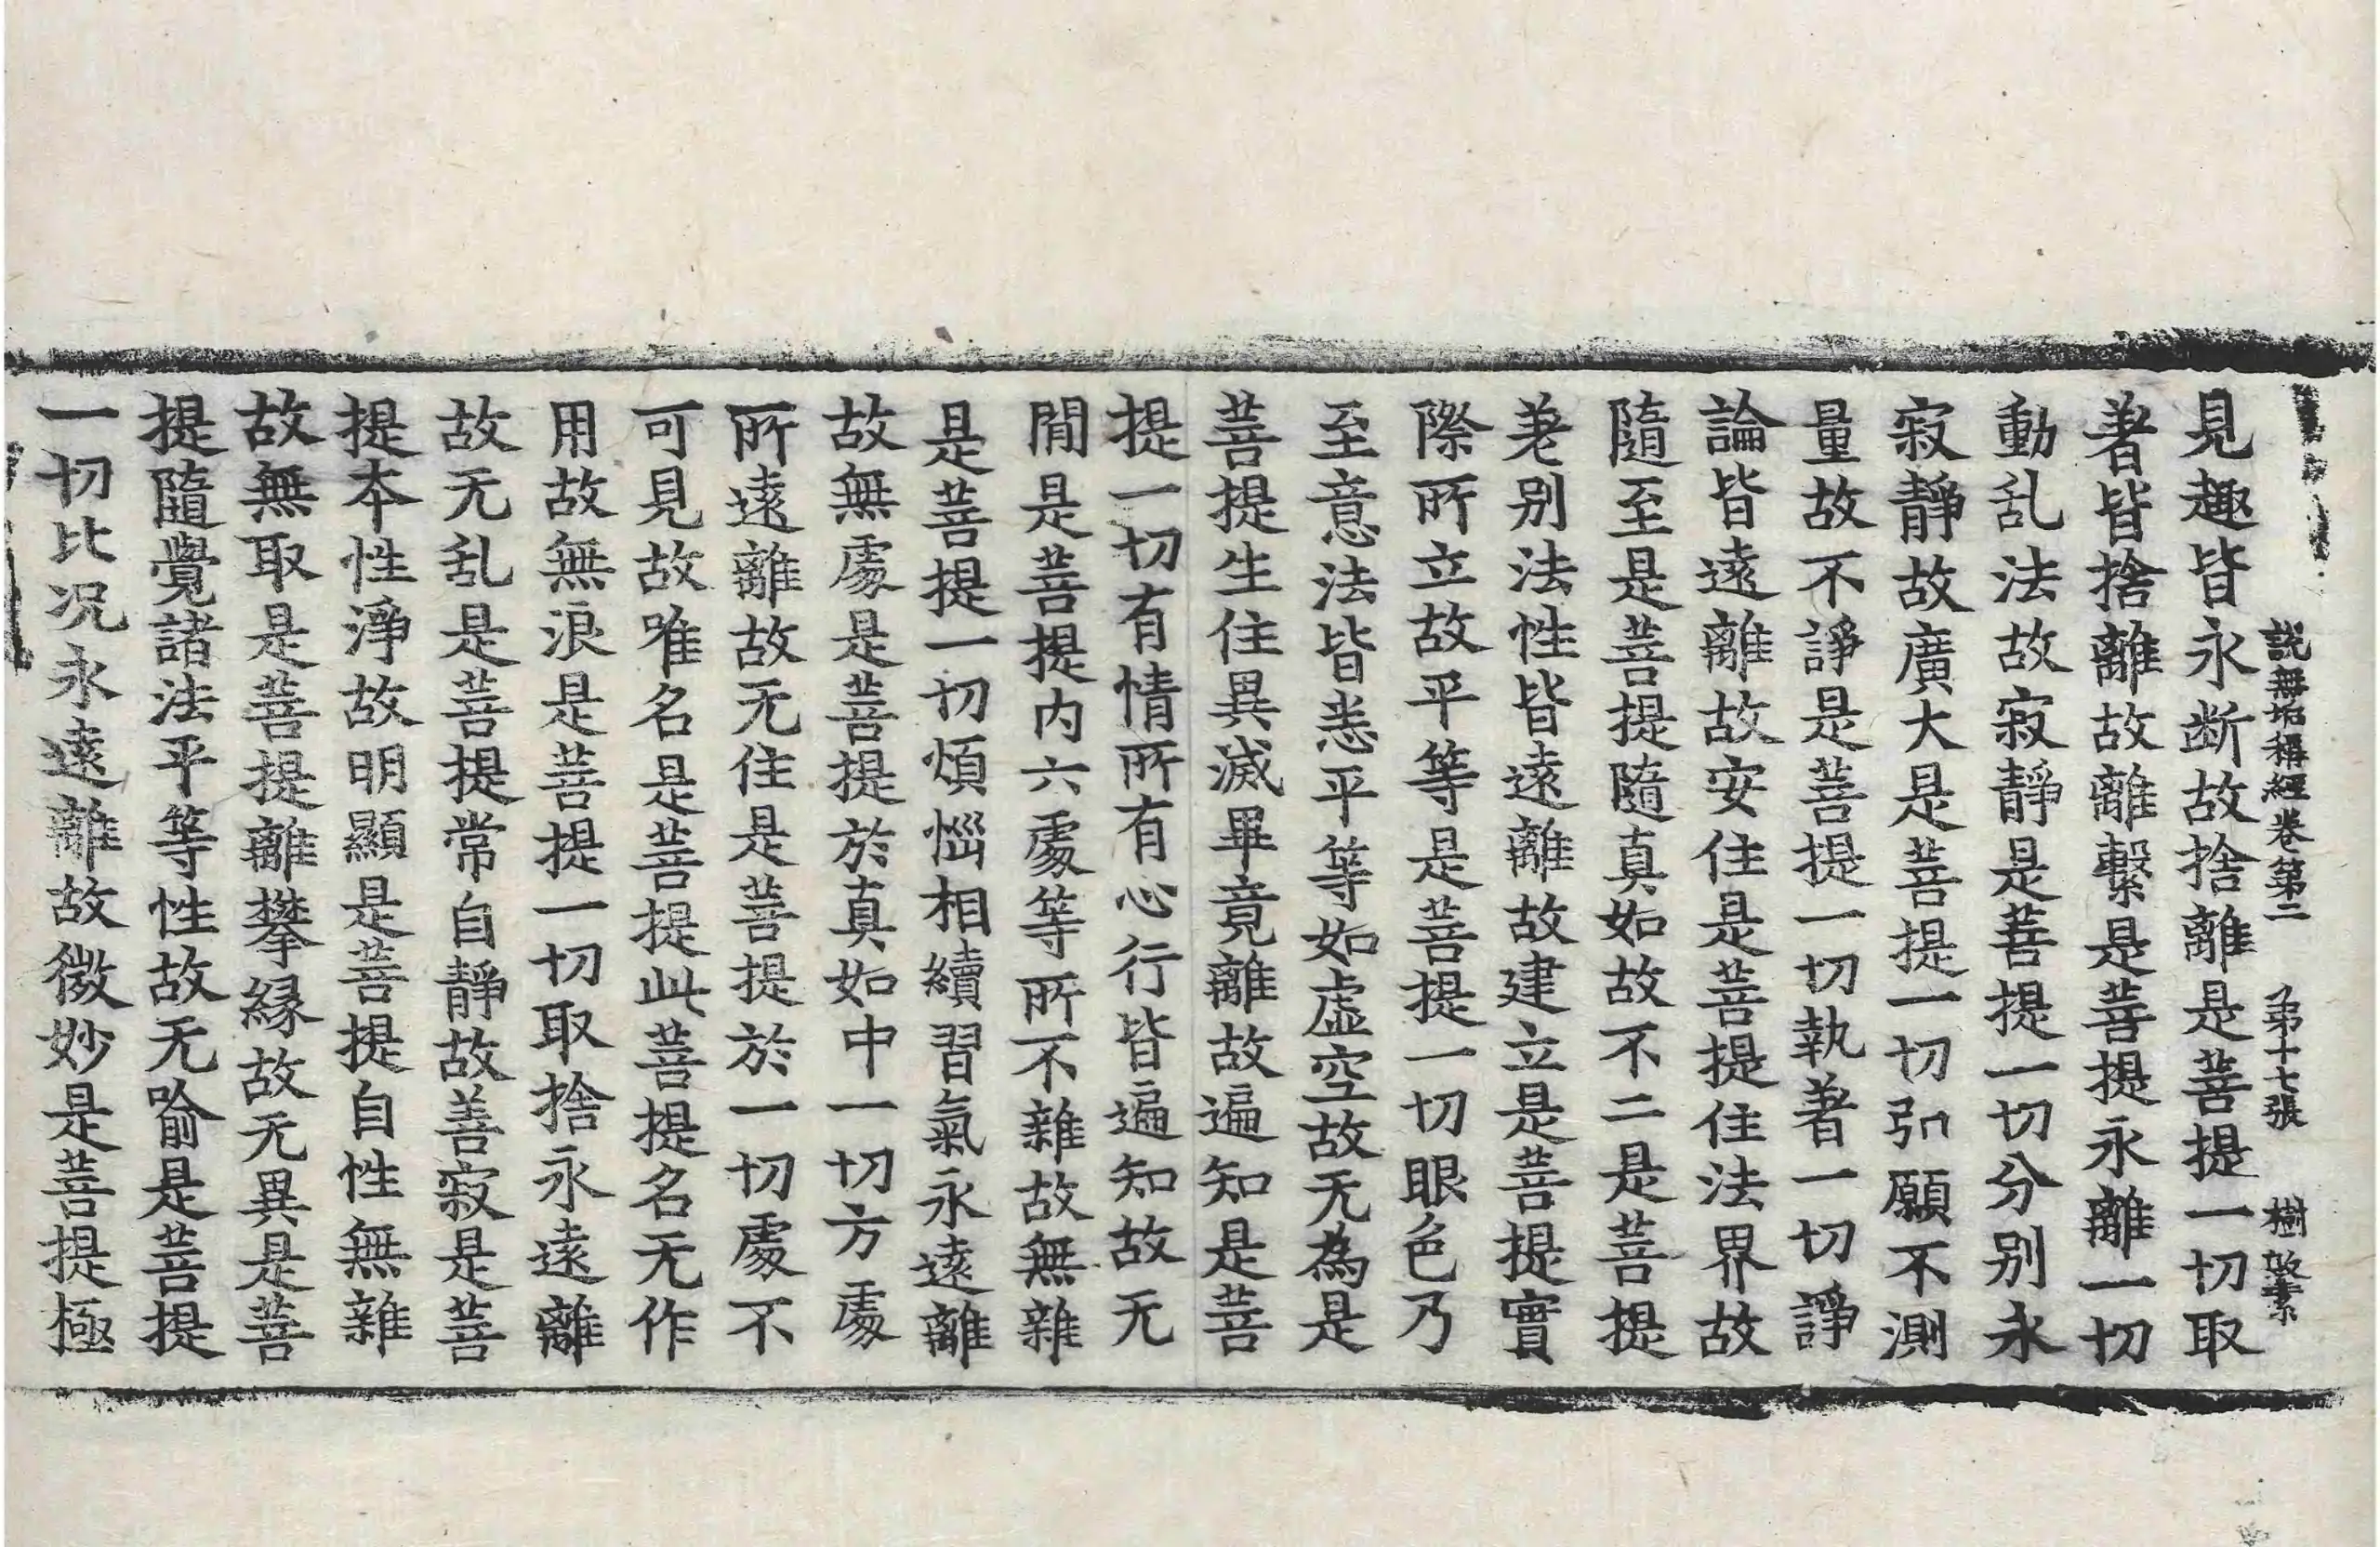 說無垢稱經卷第二　弟十七張　樹
見趣皆永断故捨離是菩提一切取
著皆捨離故離繫是菩提永離一切
動乱法故寂靜是菩提一切分别永
寂靜故廣大是菩提一切引願不測
量故不諍是菩提一切執著一切諍
論皆遠離故安住是菩提住法界故
隨至是菩提隨真如故不二是菩提
差别法性皆遠離故建立是菩提實
際所立故平等是菩提一切眼色乃
至意法皆悉平等如虛空故无為是
菩提生住異滅畢竟離故遍知是菩
提一切有情所有心行皆遍知故无
間是菩提內六處等所不雜故無雜
是菩提一切煩惱相續習氣永遠離
故無處是菩提於真如中一切方處
所遠離故无住是菩提於一切處不
可見故唯名是菩提此菩提名无作
用故無浪是菩提一切取捨永遠離
故无乱是菩提常自靜故善寂是菩
提本性淨故明顯是菩提自性無雜
故無取是菩提離攀緣故无異是菩
提隨覺諸法平等性故无喻是菩提
一切比况永遠離故微妙是菩提極